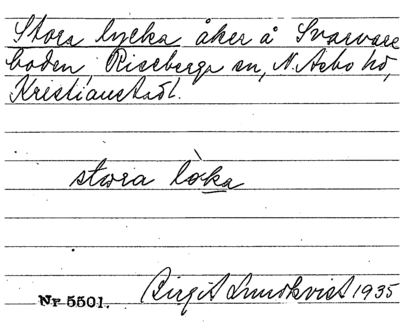 Stora lycka åker å Svarvare
boden, Riseberga sn, N. Åsbo hd,
Kristianstadsl.
stora lò̀ka
Nr 5501. Birgit Lundkvist 1935